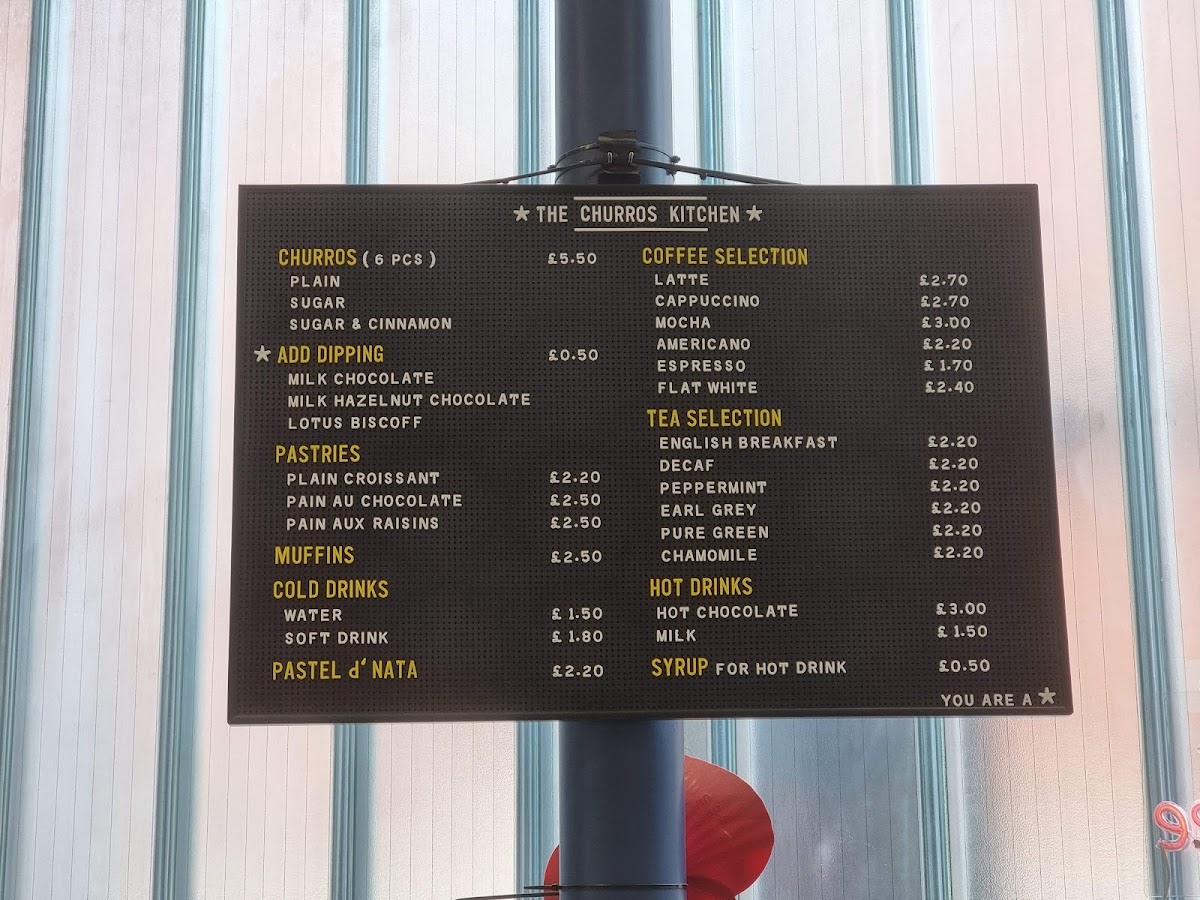 ★ THE CHURROS KITCHEN ★
CHURROS ( 6 PCS ) £5.50
PLAIN
SUGAR
SUGAR & CINNAMON
★ ADD DIPPING £0.50
MILK CHOCOLATE
MILK HAZELNUT CHOCOLATE
LOTUS BISCOFF
PASTRIES
PLAIN CROISSANT £2.20
PAIN AU CHOCOLATE £2.50
PAIN AUX RAISINS £2.50
MUFFINS £2.50
COLD DRINKS
WATER £1.50
SOFT DRINK £1.80
PASTEL d' NATA £2.20
COFFEE SELECTION
LATTE £2.70
CAPPUCCINO £2.70
MOCHA £3.00
AMERICANO £2.20
ESPRESSO £1.70
FLAT WHITE £2.40
TEA SELECTION
ENGLISH BREAKFAST £2.20
DECAF £2.20
PEPPERMINT £2.20
EARL GREY £2.20
PURE GREEN £2.20
CHAMOMILE £2.20
HOT DRINKS
HOT CHOCOLATE £3.00
MILK £1.50
SYRUP FOR HOT DRINK £0.50
YOU ARE A ★